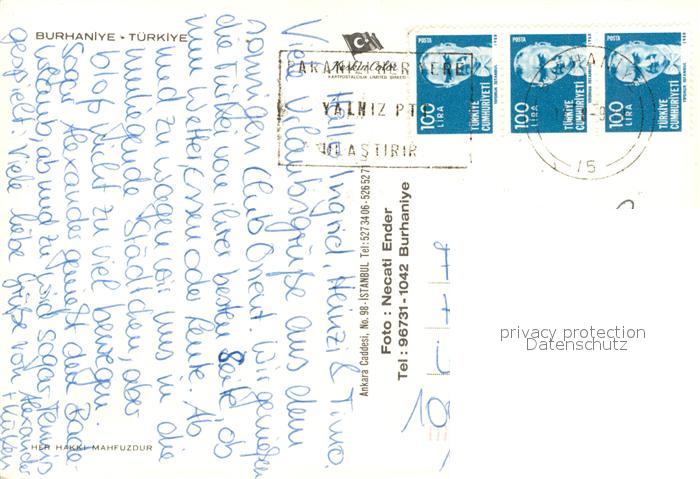 BURHANİYE - TÜRKİYE
KARTPOSTALCILIK LIMITED ŞIRKETI
PARANIZI HER YERE
YALNIZ PTT
ULAŞTIRIR
POSTA
100
LIRA
TÜRKİYE
CUMHURİYETİ
POSTA
100
LIRA
TÜRKİYE
CUMHURİYETİ
POSTA
100
LIRA
TÜRKİYE
CUMHURİYETİ
15
Hallo Ingrid, Heinz & Timo.
Viele Urlaubsgrüße aus dem
Club Orient. Wir genießen
die Türkei von ihrer besten Seite, ob
nun Wetter, Essen oder Leute. Ab
und zu wagen wir uns in die
umliegende Städtchen, aber
bloß nicht zu viel bewegen.
Sogar Alexander genießt den Bade-
urlaub, ab und zu wird sogar Tennis
gespielt. Viele liebe Grüße von Alexander
Ankara Caddesi, No. 98-İSTANBUL Tel: 5273406-526527
Foto : Necati Ender
Tel : 96731-1042 Burhaniye
HER HAKKI MAHFUZDUR
privacy protection
Datenschutz